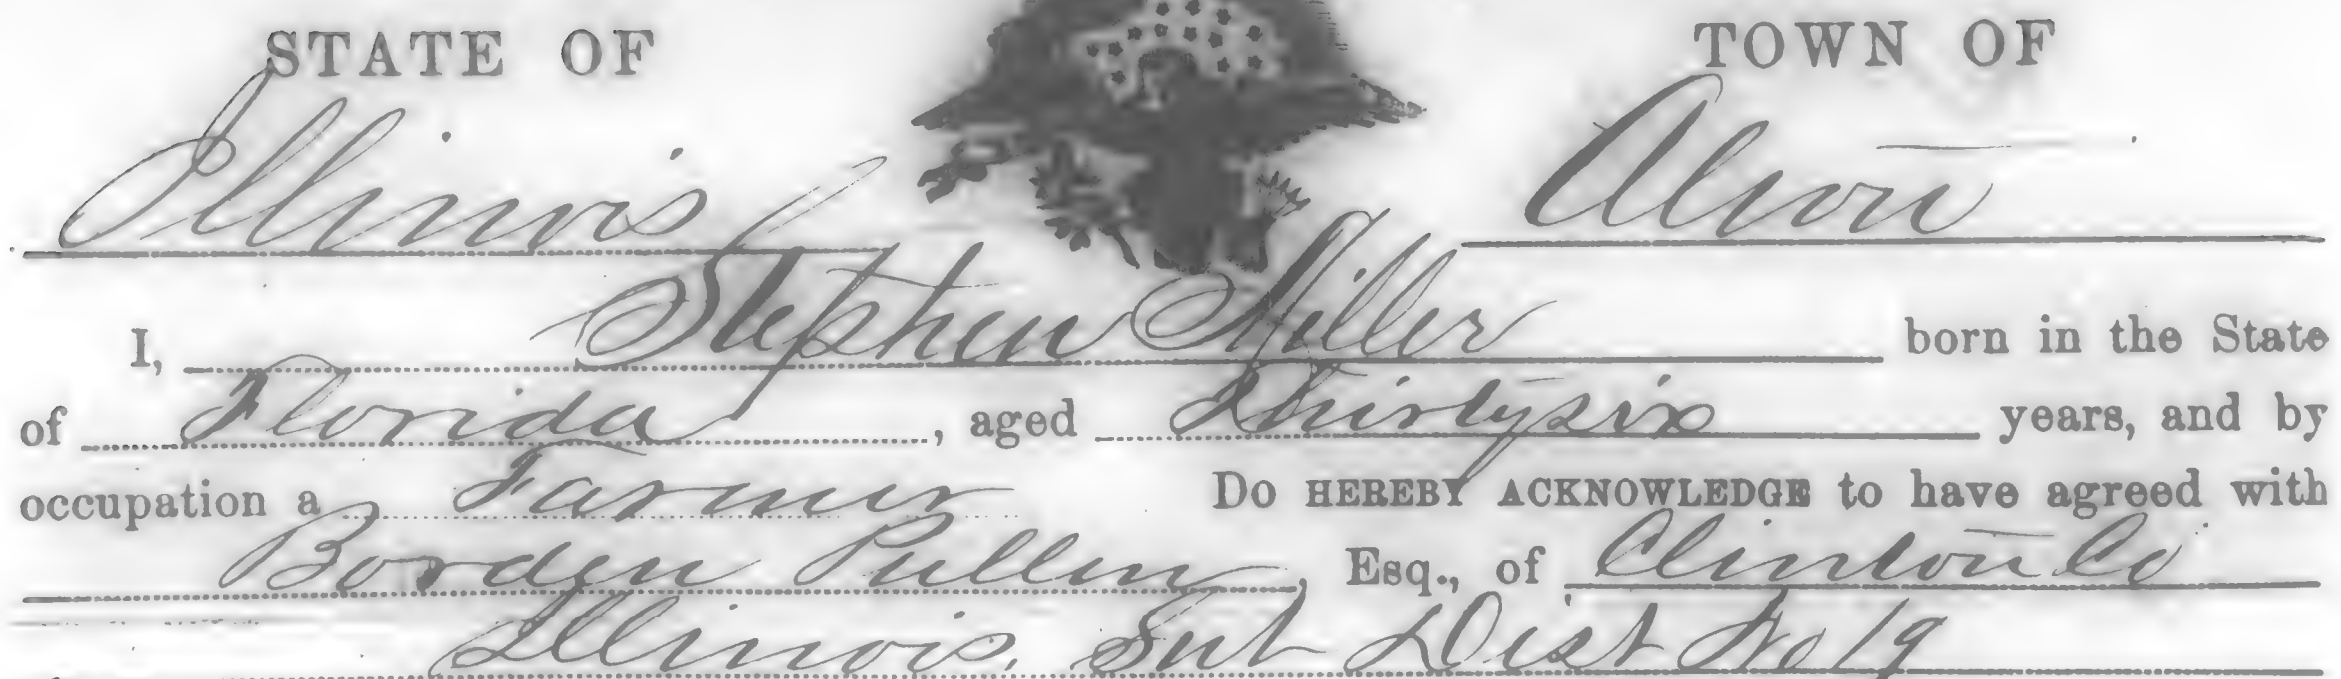 STATE OF
TOWN OF
Illinois
Alton
I, Stephen Miller born in the State
of Florida, aged Thirtysix years, and by
occupation a Farmer Do HEREBY ACKNOWLEDGE to have agreed with
Borden Pullen, Esq., of Clinton Co
Illinois. Sub Dist No 19